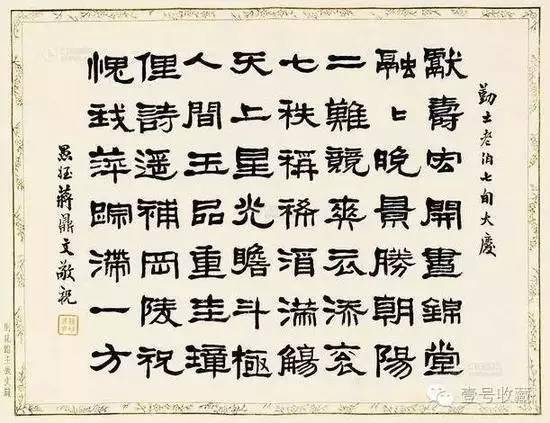 勤士老伯七旬大慶
獻壽宏開晝錦堂
融〻晚景勝朝陽
二難競爽云添衮
七秩稱稀酒滿觴
天上星光瞻斗極
人間玉品重圭璋
俚詩遥補冈陵祝
愧我萍踪滯一方
愚侄蔣鼎文敬祝
壹号收藏